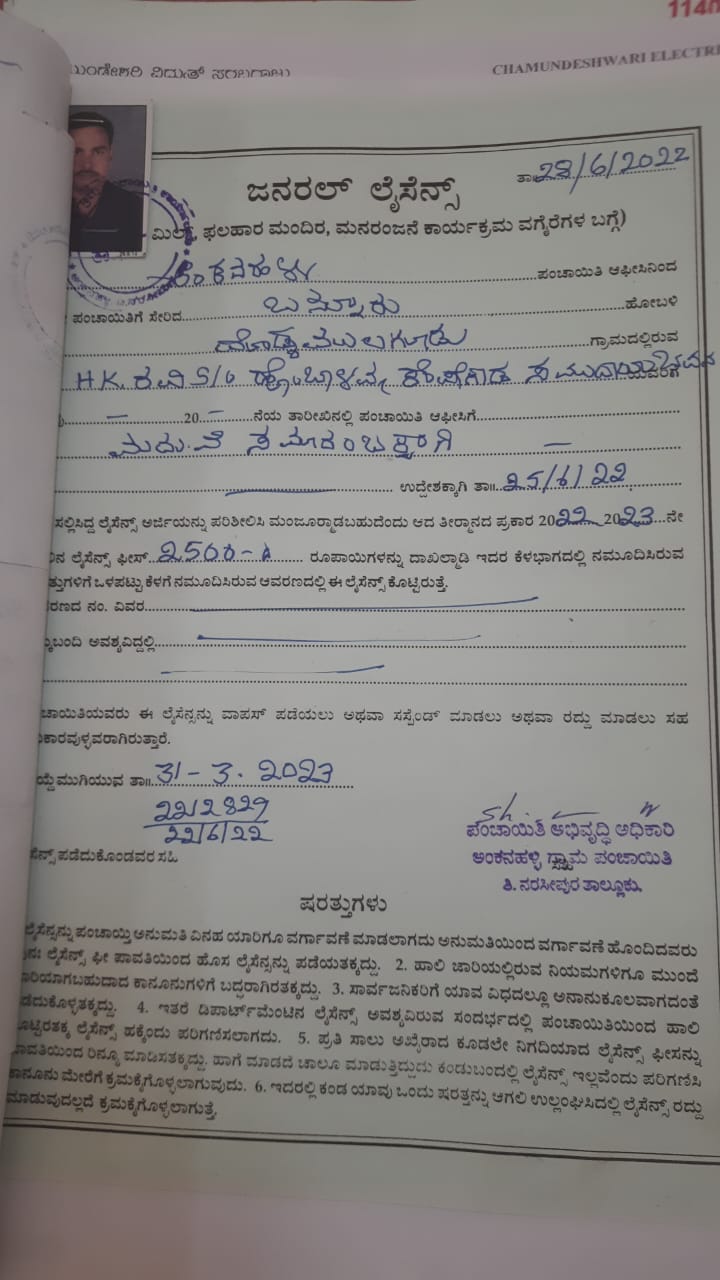 1140
ವಿದ್ಯುತ್ ಸರಬರಾಜು
CHAMUNDESHWARI ELECTRI
ಜನರಲ್ ಲೈಸೆನ್ಸ್
ತಾ॥ 28/6/2022
ಮಿಲ್, ಫಲಹಾರ ಮಂದಿರ, ಮನರಂಜನೆ ಕಾರ್ಯಕ್ರಮ ವಗೈರೆಗಳ ಬಗ್ಗೆ)
ಪಂಚಾಯಿತಿ ಆಫೀಸಿನಿಂದ
ಪಂಚಾಯಿತಿಗೆ ಸೇರಿದ ಬನ್ನೂರು ಹೋಬಳಿ
ಗ್ರಾಮದಲ್ಲಿರುವ
H.K. ರವಿ S/o ಸಮುದಾಯ ಭವನ ಯವರಿಗೆ
— 20 — ನೆಯ ತಾರೀಖಿನಲ್ಲಿ ಪಂಚಾಯಿತಿ ಆಫೀಸಿಗೆ
ಮದುವೆ ಸಮಾರಂಭಕ್ಕಾಗಿ —
ಉದ್ದೇಶಕ್ಕಾಗಿ ತಾ॥ 25/6/22
ಸಲ್ಲಿಸಿದ್ದ ಲೈಸೆನ್ಸ್ ಅರ್ಜಿಯನ್ನು ಪರಿಶೀಲಿಸಿ ಮಂಜೂರ್ಮಾಡಬಹುದೆಂದು ಆದ ತೀರ್ಮಾನದ ಪ್ರಕಾರ 2022 2023 ನೇ
ಲೈಸೆನ್ಸ್ ಫೀಸ್ 2500-0 ರೂಪಾಯಿಗಳನ್ನು ದಾಖಲ್ಮಾಡಿ ಇದರ ಕೆಳಭಾಗದಲ್ಲಿ ನಮೂದಿಸಿರುವ
ತ್ತುಗಳಿಗೆ ಒಳಪಟ್ಟು ಕೆಳಗೆ ನಮೂದಿಸಿರುವ ಆವರಣದಲ್ಲಿ ಈ ಲೈಸೆನ್ಸ್ ಕೊಟ್ಟಿರುತ್ತೆ.
ರಣದ ನಂ. ವಿವರ
ಬಂದಿ ಅವಶ್ಯವಿದ್ದಲ್ಲಿ
ಚಾಯಿತಿಯವರು ಈ ಲೈಸೆನ್ಸನ್ನು ವಾಪಸ್ ಪಡೆಯಲು ಅಥವಾ ಸಸ್ಪೆಂಡ್ ಮಾಡಲು ಅಥವಾ ರದ್ದು ಮಾಡಲು ಸಹ
ಕಾರವುಳ್ಳವರಾಗಿರುತ್ತಾರೆ.
ಮುಗಿಯುವ ತಾ॥ 31-3-2023
22/2829
22/6/22
ಸೆನ್ಸ್ ಪಡೆದುಕೊಂಡವರ ಸಹಿ
ಪಂಚಾಯಿತಿ ಅಭಿವೃದ್ಧಿ ಅಧಿಕಾರಿ
ಅಂಕನಹಳ್ಳಿ ಗ್ರಾಮ ಪಂಚಾಯಿತಿ
ತಿ. ನರಸೀಪುರ ತಾಲ್ಲೂಕು.
ಷರತ್ತುಗಳು
ಲೈಸೆನ್ಸನ್ನು ಪಂಚಾಯ್ತಿ ಅನುಮತಿ ವಿನಹ ಯಾರಿಗೂ ವರ್ಗಾವಣೆ ಮಾಡಲಾಗದು ಅನುಮತಿಯಿಂದ ವರ್ಗಾವಣೆ ಹೊಂದಿದವರು
ನಃ ಲೈಸೆನ್ಸ್ ಫೀ ಪಾವತಿಯಿಂದ ಹೊಸ ಲೈಸೆನ್ಸನ್ನು ಪಡೆಯತಕ್ಕದ್ದು. 2. ಹಾಲಿ ಜಾರಿಯಲ್ಲಿರುವ ನಿಯಮಗಳಿಗೂ ಮುಂದೆ
ರಿಯಾಗಬಹುದಾದ ಕಾನೂನುಗಳಿಗೆ ಬದ್ಧರಾಗಿರತಕ್ಕದ್ದು. 3. ಸಾರ್ವಜನಿಕರಿಗೆ ಯಾವ ವಿಧದಲ್ಲೂ ಅನಾನುಕೂಲವಾಗದಂತೆ
ಡೆದುಕೊಳ್ಳತಕ್ಕದ್ದು. 4. ಇತರೆ ಡಿಪಾರ್ಟ್‌ಮೆಂಟಿನ ಲೈಸೆನ್ಸ್ ಅವಶ್ಯವಿರುವ ಸಂದರ್ಭದಲ್ಲಿ ಪಂಚಾಯಿತಿಯಿಂದ ಹಾಲಿ
ೊಟ್ಟಿರತಕ್ಕ ಲೈಸೆನ್ಸ್ ಹಕ್ಕೆಂದು ಪರಿಗಣಿಸಲಾಗದು. 5. ಪ್ರತಿ ಸಾಲು ಅಖೈರಾದ ಕೂಡಲೇ ನಿಗದಿಯಾದ ಲೈಸೆನ್ಸ್ ಫೀಸನ್ನು
ಪಾವತಿಯಿಂದ ರಿನ್ಯೂ ಮಾಡಿಸತಕ್ಕದ್ದು. ಹಾಗೆ ಮಾಡದೆ ಚಾಲೂ ಮಾಡುತ್ತಿದ್ದುದು ಕಂಡುಬಂದಲ್ಲಿ ಲೈಸೆನ್ಸ್ ಇಲ್ಲವೆಂದು ಪರಿಗಣಿಸಿ
ಕಾನೂನು ಮೇರೆಗೆ ಕ್ರಮಕೈಗೊಳ್ಳಲಾಗುವುದು. 6. ಇದರಲ್ಲಿ ಕಂಡ ಯಾವು ಒಂದು ಷರತ್ತನ್ನು ಆಗಲಿ ಉಲ್ಲಂಘಿಸಿದಲ್ಲಿ ಲೈಸೆನ್ಸ್ ರದ್ದು
ಮಾಡುವುದಲ್ಲದೆ ಕ್ರಮಕೈಗೊಳ್ಳಲಾಗುತ್ತೆ.